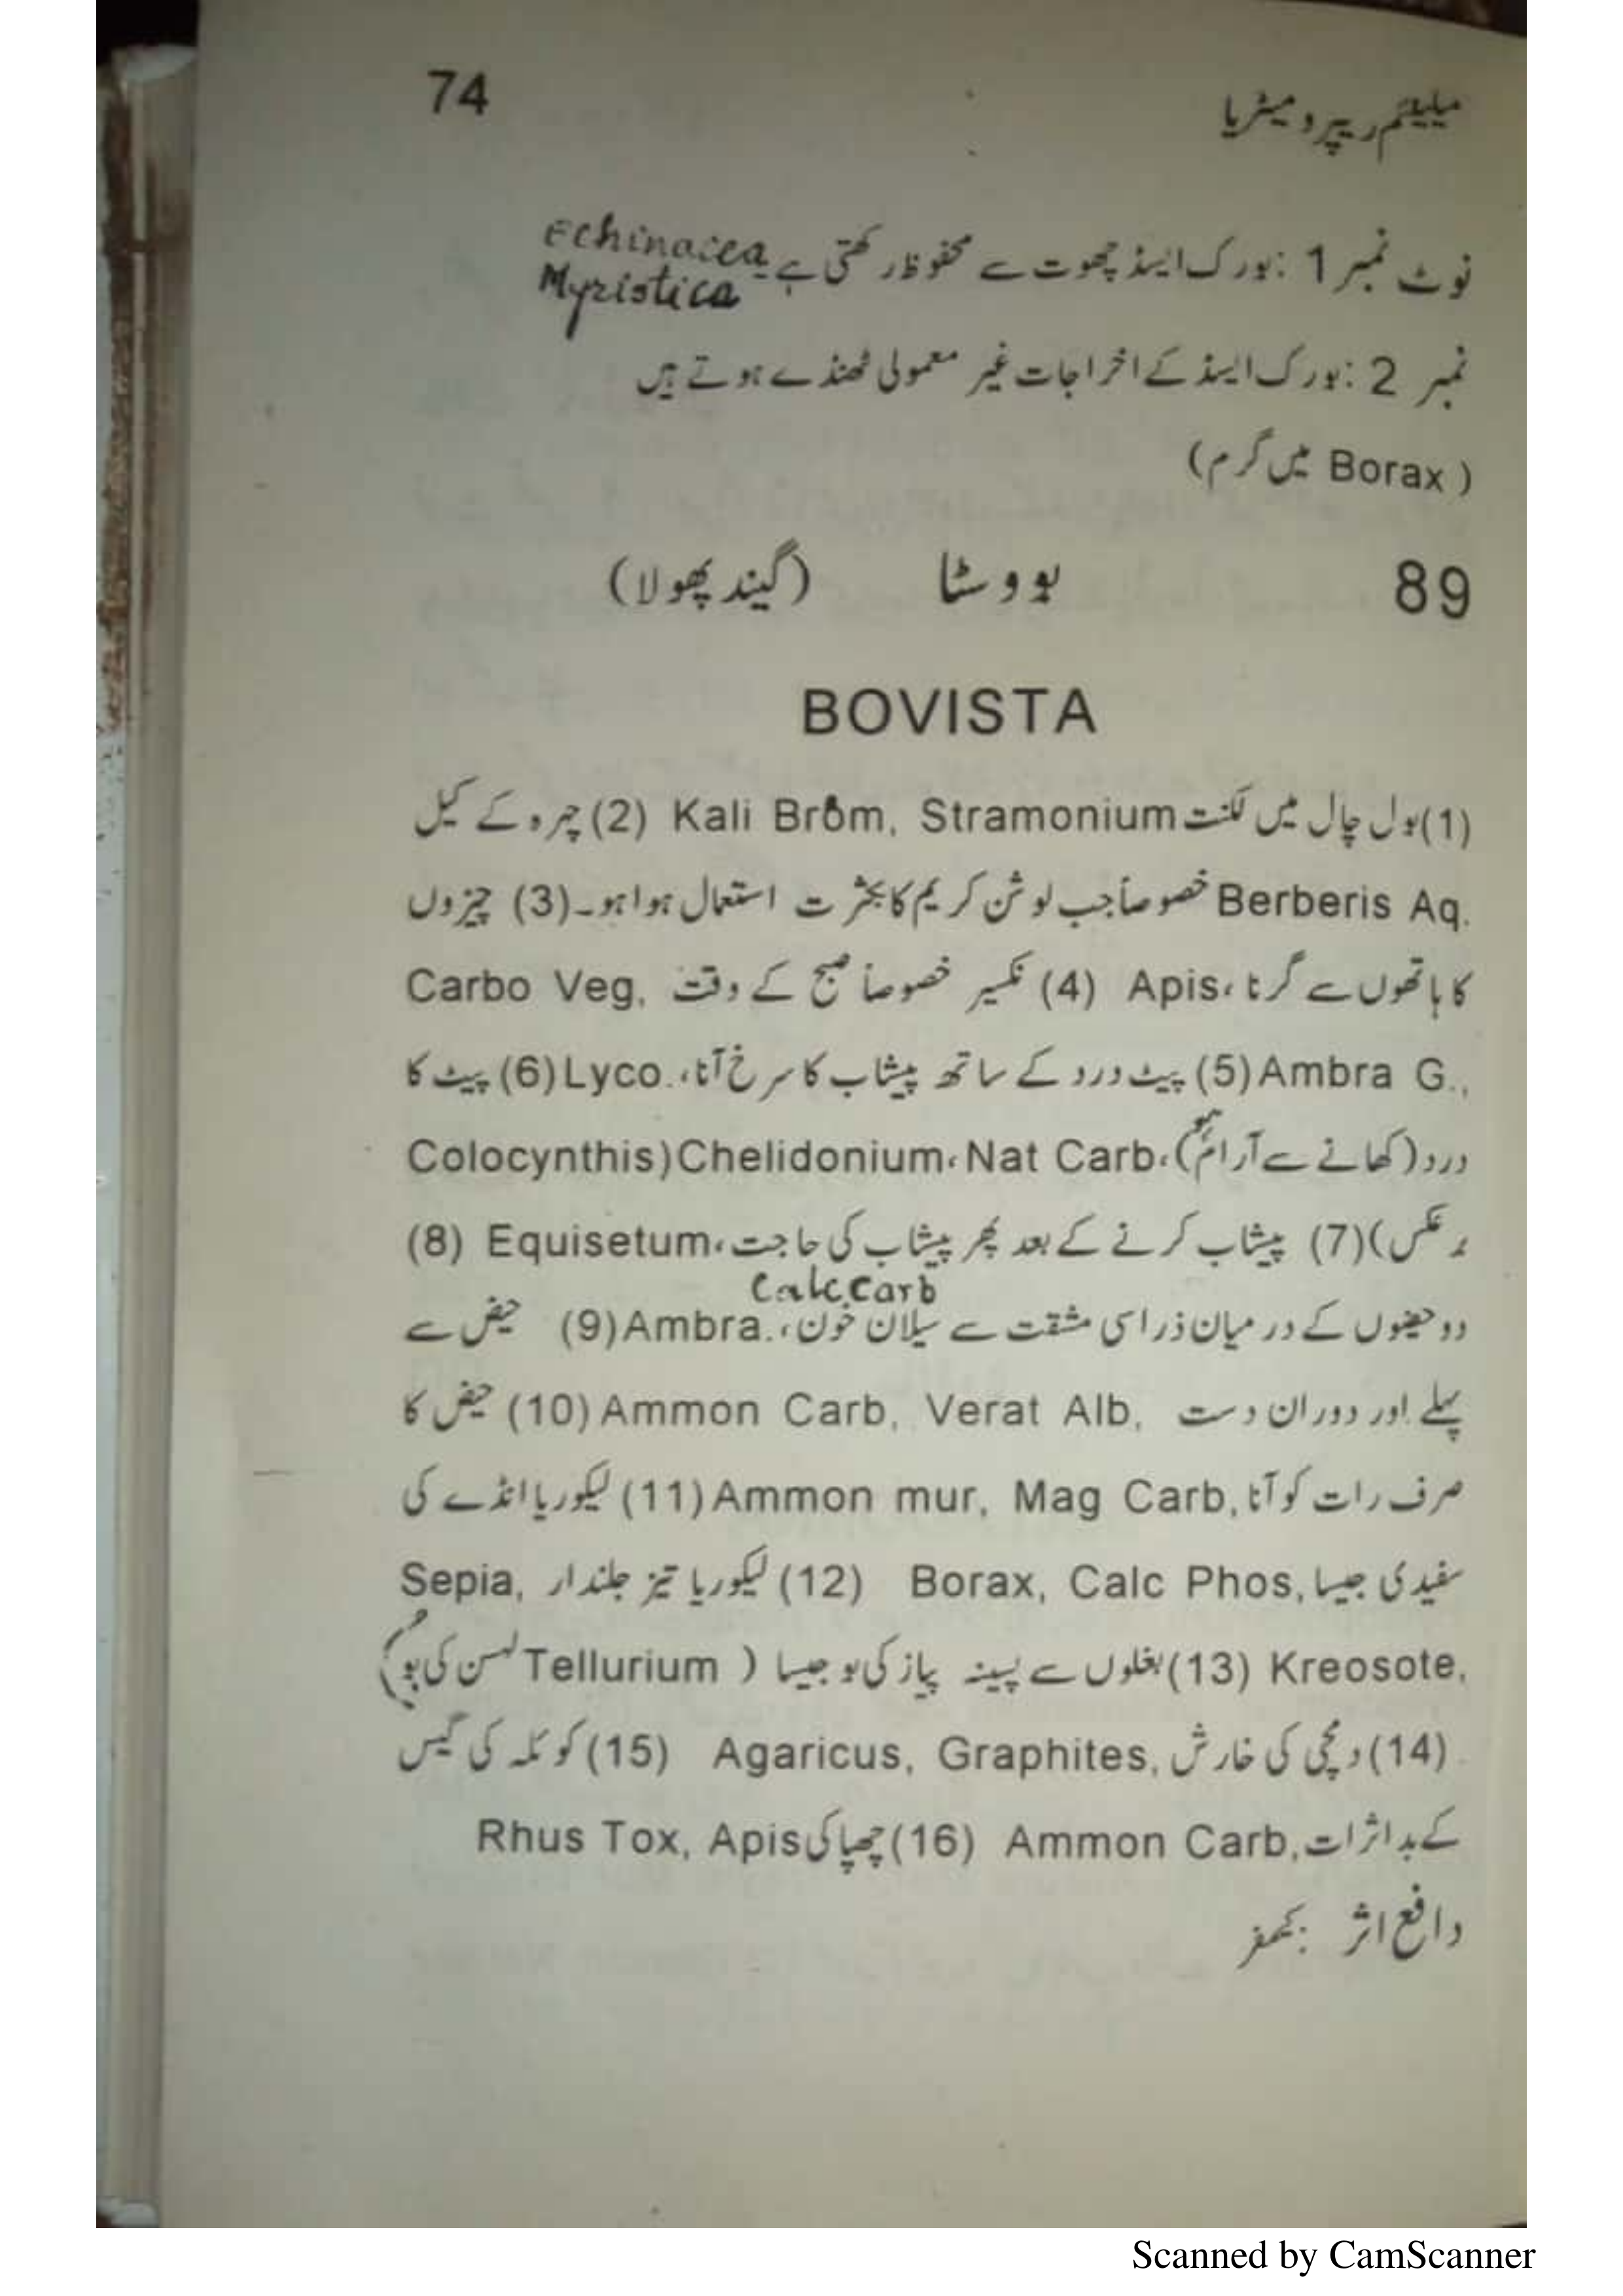 74
میلینیم ریپرومیٹریا
نوٹ نمبر 1 :بورک ایسڈ چھوت سے محفوظ رکھتی ہے۔ Echinacea
Myristica
نمبر 2 :بورک ایسڈ کے اخراجات غیر معمولی ٹھنڈے ہوتے ہیں
( Borax میں گرم)
89 بوِوسٹا (گیند پھولا)
BOVISTA
(1)بول چال میں لکنت Kali Brom, Stramonium (2) چہرہ کے کیل
Berberis Aq. خصوصاً جب لوشن کریم کا بکثرت استعمال ہوا ہو۔(3) چیزوں
کا ہاتھوں سے گرنا، Apis (4) نکسیر خصوصاً صبح کے وقت Carbo Veg,
Ambra G., (5) پیٹ درد کے ساتھ پیشاب کا سرخ آنا، Lyco. (6) پیٹ کا
درد(کھانے سے آرام ہو)، Colocynthis)Chelidonium، Nat Carb
برعکس)(7) پیشاب کرنے کے بعد پھر پیشاب کی حاجت، Equisetum (8)
Calc.Carb
دو حیضوں کے درمیان ذرا سی مشقت سے سیلان خون، Ambra. (9) حیض سے
پہلے اور دوران دست Ammon Carb, Verat Alb, (10) حیض کا
صرف رات کو آنا Ammon mur, Mag Carb, (11) لیکوریا انڈے کی
سفیدی جیسا Borax, Calc Phos, (12) لیکوریا تیز جلندار Sepia,
Kreosote, (13) بغلوں سے پسینہ پیاز کی بو جیسا ( Tellurium لہسن کی بو)
(14) دمچی کی خارش Agaricus, Graphites, (15) کوئلہ کی گیس
کے بد اثرات Ammon Carb, (16) چھپاکی Rhus Tox, Apis
دافع اثر :کیمفر
Scanned by CamScanner